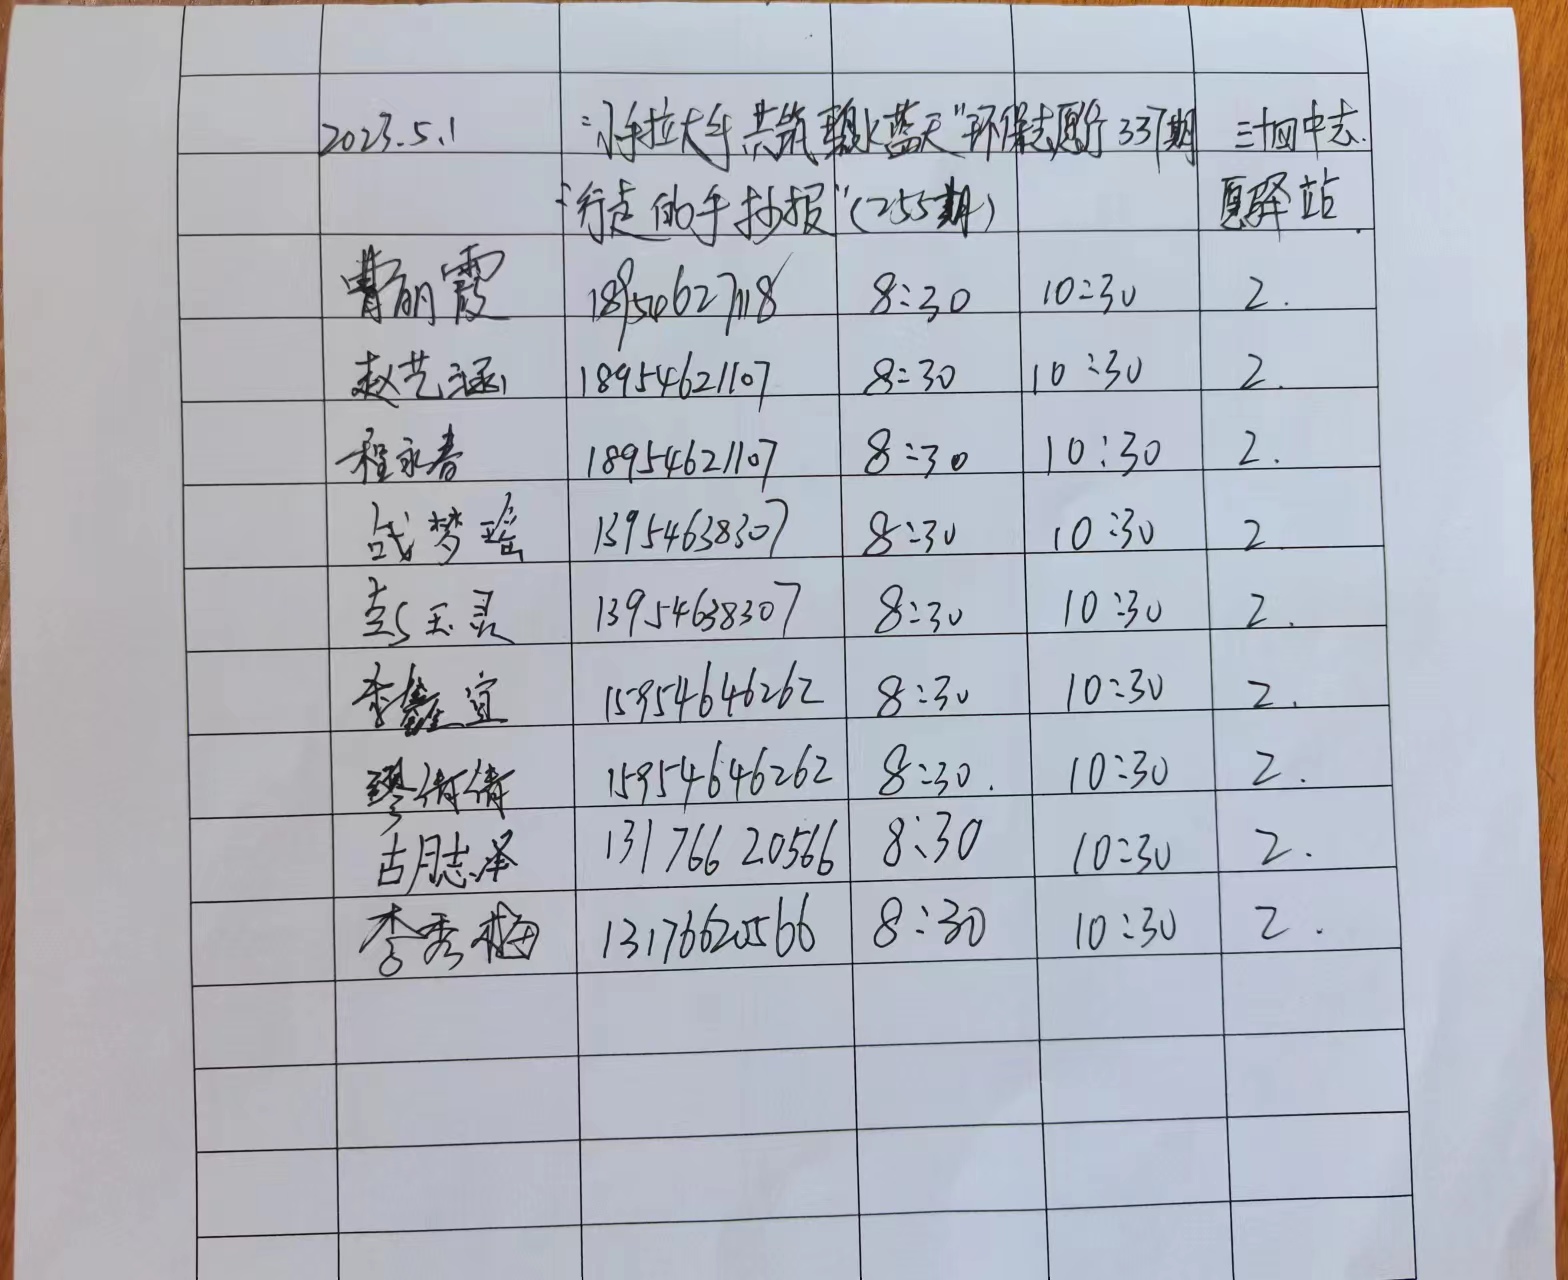 2023.5.1 "小手拉大手 共筑碧水蓝天"环保志愿行337期 三十四中志
"行走的手抄报"(255期) 愿驿站.
曹丽霞 18954627118 8:30 10:30 2.
赵艺涵 18954621107 8:30 10:30 2.
程永春 18954621107 8:30 10:30 2.
战梦瑶 13954638307 8:30 10:30 2.
彭玉灵 13954638307 8:30 10:30 2.
李鑫宜 15954646262 8:30 10:30 2.
缪倩倩 15954646262 8:30. 10:30 2.
胡志泽 13176620566 8:30 10:30 2.
李秀梅 13176620566 8:30 10:30 2.